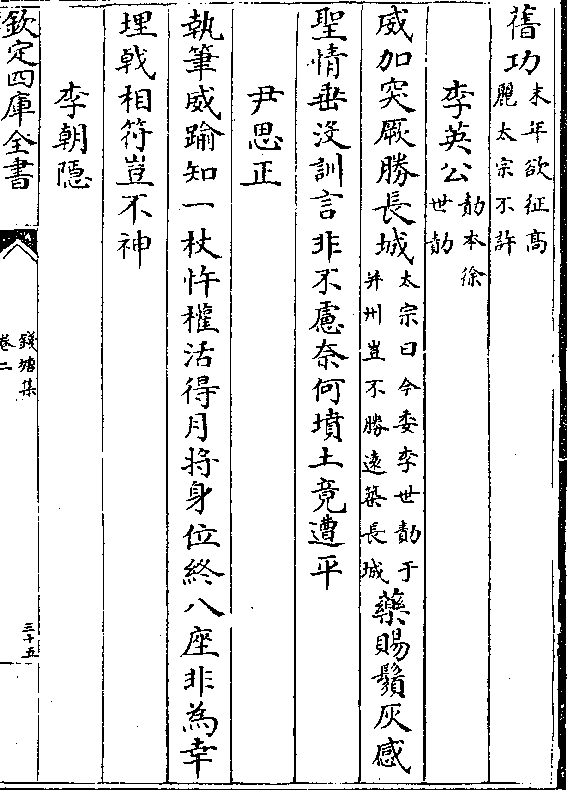 舊功末年欲征高麗太宗不許
李英公勣本徐世勣
威加突厥勝長城太宗曰今委李世勣于并州豈不勝遠築長城藥賜鬚灰感
聖情垂沒訓言非不慮奈何墳土竟遭平
尹思正
執筆威踰知一杖忤權活得月將身位終八座非為幸
埋戟相符豈不神
李朝隱
欽定四庫全書
錢塘集
卷二
三十五